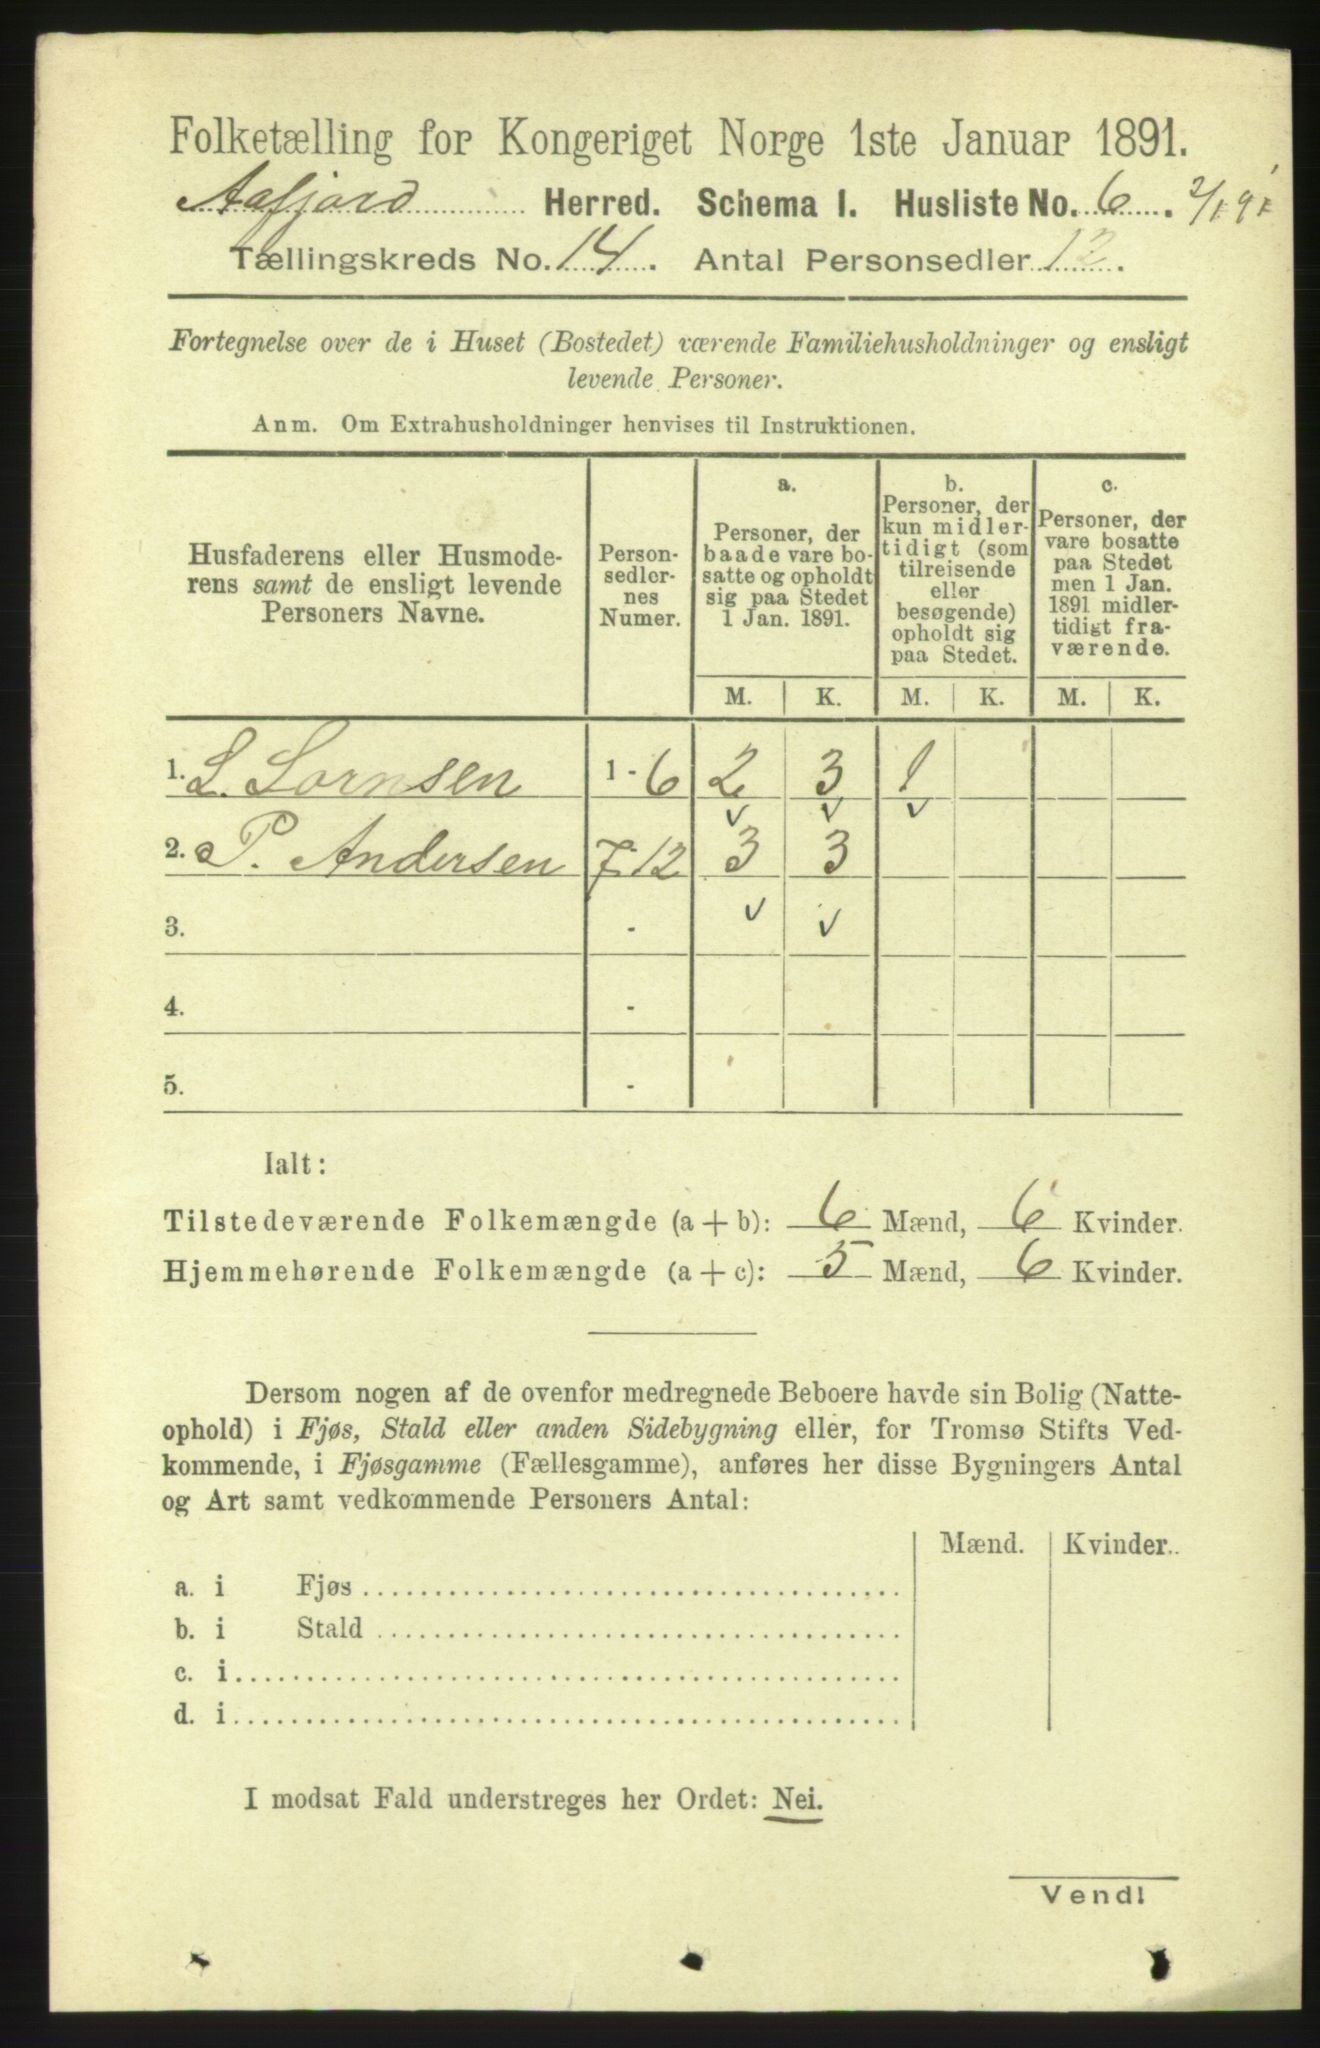 Folketælling for Kongeriget Norge 1ste Januar 1891.
Aafjord Herred. Schema I. Husliste No. 6. 2/1 91
Tællingskreds No. 14. Antal Personsedler 12.
Fortegnelse over de i Huset (Bostedet) værende Familiehusholdninger og ensligt
levende Personer.
Anm. Om Extrahusholdninger henvises til Instruktionen.
Husfaderens eller Husmode-
rens samt de ensligt levende
Personers Navne.
Person-
sedler-
nes
Numer.
a.
Personer, der
baade vare bo-
satte og opholdt
sig paa Stedet
1 Jan. 1891.
b.
Personer, der
kun midler-
tidigt (som
tilreisende
eller
besøgende)
opholdt sig
paa Stedet.
c.
Personer, der
vare bosatte
paa Stedet
men 1 Jan.
1891 midler-
tidigt fra-
værende.
M. K. M. K. M. K.
1. L. Lornsen 1 - 6 2 3 1
v v v
2. P. Andersen 7-12 3 3
v v
3. -
4. -
5. -
Ialt:
Tilstedeværende Folkemængde (a + b): 6 Mænd, 6 Kvinder.
Hjemmehørende Folkemængde (a + c): 5 Mænd, 6 Kvinder.
Dersom nogen af de ovenfor medregnede Beboere havde sin Bolig (Natte-
ophold) i Fjøs, Stald eller anden Sidebygning eller, for Tromsø Stifts Ved-
kommende, i Fjøsgamme (Fællesgamme), anføres her disse Bygningers Antal
og Art samt vedkommende Personers Antal:
Mænd. Kvinder.
a. i Fjøs
b. i Stald
c. i
d. i
I modsat Fald understreges her Ordet: Nei.
Vend!